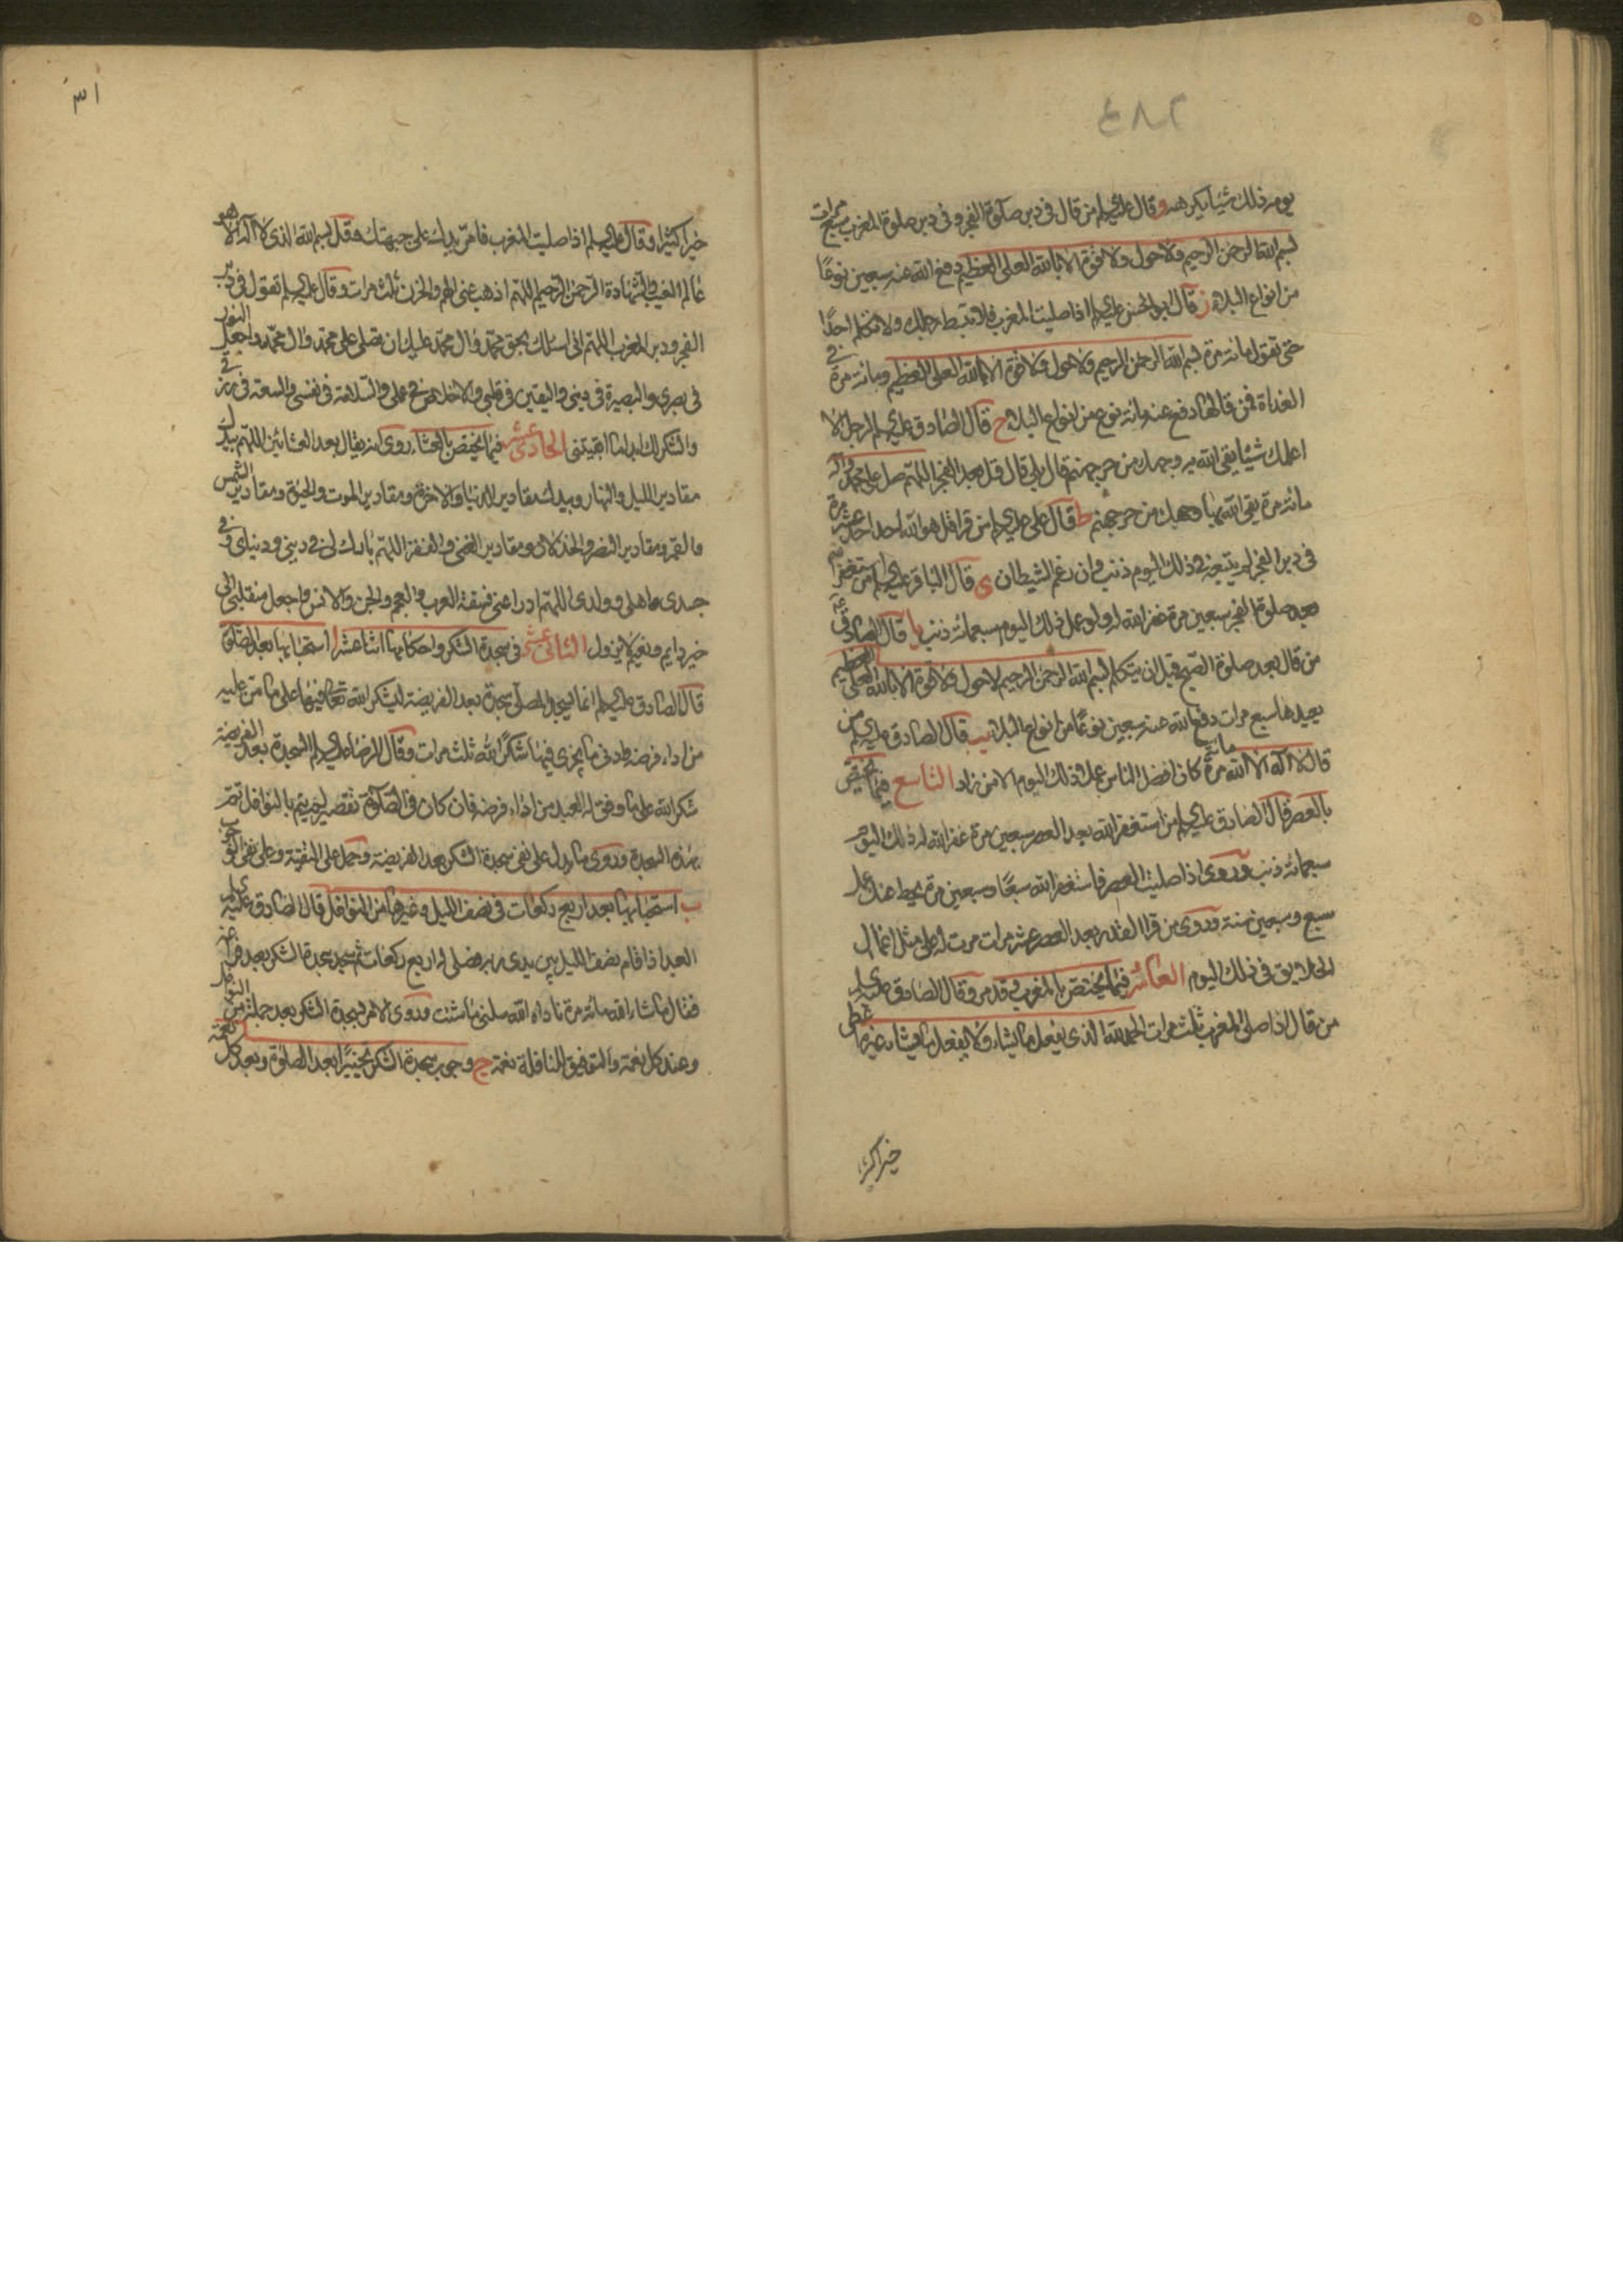 ٤٨٢
يومه ذلك شيئا يكرهه و قال عليه السلم من قال في دبر صلوة الفجر و في دبر صلوة المغرب سبع مرات
بسم الله الرحمن الرحيم ولا حول ولا قوة الا بالله العلي العظيم دفع الله عنه سبعين نوعًا
من انواع البلاء ز قال ابو الحسن عليه السلم اذا صليت المغرب فلا تبسط رجلك ولا تكلم احدًا
حتى تقول مائة مرة بسم الله الرحمن الرحيم ولا حول ولا قوة الا بالله العلي العظيم ومائة مرة في
الغداة فمن قالها دفع عنه مائة نوع من انواع البلاء ح قال الصادق عليه السلم لرجل الا
اعلمك شيئا يقى الله به وجهك من حر جهنم قال بلى قال قل بعد الفجر اللهم صل على محمد واله
مائة مرة يقى الله بها وجهك من حر جهنم ط قال علي عليه السلم من قرا قل هو الله احد احد عشر مرة
في دبر الفجر لم يتبعه في ذلك اليوم ذنب وان رغم الشيطان ى قال الباقر عليه السلم من استغفر الله
بعد صلوة الفجر سبعين مرة غفر الله له ولو عمل ذلك اليوم سبعمائة ذنب يا قال الصادق ع
من قال بعد صلوة الصبح قبل ان يتكلم بسم الله الرحمن الرحيم لا حول ولا قوة الا بالله العلي العظيم
يعيدها سبع مرات دفع الله عنه سبعين نوعًا من انواع البلاء يب قال الصادق عليه السلم من
قال لا اله الا الله مائة مرة كان افضل الناس عملا ذلك اليوم الا من زاد التاسع فيما يختص
بالعصر قال الصادق عليه السلم من استغفر الله بعد العصر سبعين مرة غفر الله له ذلك اليوم
سبعمائة ذنب و روى اذا صليت العصر فاستغفر الله سبعًا وسبعين مرة يحط عنك عمل
سبع وسبعين سنة و روى من قرا القدر بعد العصر عشر مرات مرت له على مثل اعمال
الخلايق في ذلك اليوم العاشر فيما يختص بالمغرب وقد مر و قال الصادق عليه السلم
من قال اذا صلى المغرب ثلث مرات الحمد لله الذي يفعل ما يشاء ولا يفعل ما يشاء غيره اعطى
خيرا كثيرا
٣١
خيرا كثيرا و قال عليه السلم اذا صليت المغرب فامر يدك على جبهتك وقل بسم الله الذي لا اله الا هو
عالم الغيب والشهادة الرحمن الرحيم اللهم اذهب عني الهم والحزن ثلث مرات و قال عليه السلم تقول في دبر
الفجر ودبر المغرب اللهم اني اسئلك بحق محمد وال محمد عليك ان تصلي على محمد وال محمد واجعل النور
في بصري والبصيرة في ديني واليقين في قلبي والاخلاص في عملي والسلامة في نفسي والسعة في رزقي
والشكر لك ابدا ما ابقيتني الحادي عشر فيما يختص بالعشاء روى انه يقال بعد العشائين اللهم بيدك
مقادير الليل والنهار وبيدك مقادير الدنيا والاخرة ومقادير الموت والحيوة ومقادير الشمس
والقمر ومقادير النصر والخذلان ومقادير الغنى والفقر اللهم بارك لي في ديني ودنياي وفي
جسدي واهلي وولدي اللهم ادرا عني فسقة العرب والعجم والجن والانس واجعل منقلبي الى
خير دايم ونعيم لا يزول الثاني عشر في سجدة الشكر واحكامها اثنا عشر ا استحبابها بعد الصلوة
قال الصادق عليه السلم انما يسجد المصلي سجدة بعد الفريضة ليشكر الله تعالى فيها على ما من عليه
من اداء فرضه وادنى ما يجزي فيها شكرًا لله ثلث مرات و قال الرضا عليه السلم السجدة بعد الفريضة
شكر الله على ما وفق له العبد من اداء فرضه فان كان في الصلوة تقصير لم يتم بالنوافل تم
بهذه السجدة و روى ما يدل على نفي سجدة الشكر بعد الفريضة وحمل على التقية وعلى نفي الوجوب
ب استحبابها بعد اربع ركعات في نصف الليل وغيرها من النوافل قال الصادق عليه السلم
العبد اذا قام نصف الليل بين يدي ربه فصلى له اربع ركعات ثم سجد سجدة الشكر بعد فراغه
فقال ما شاء الله مائة مرة ناداه الله سلني ما شئت و روى الامر بسجدة الشكر بعد جملة من النوافل
وعند كل نعمة والتوفيق للنافلة نعمة ج وجوب سجدة الشكر تخييرًا بعد الصلوة وبعد كل نعمة